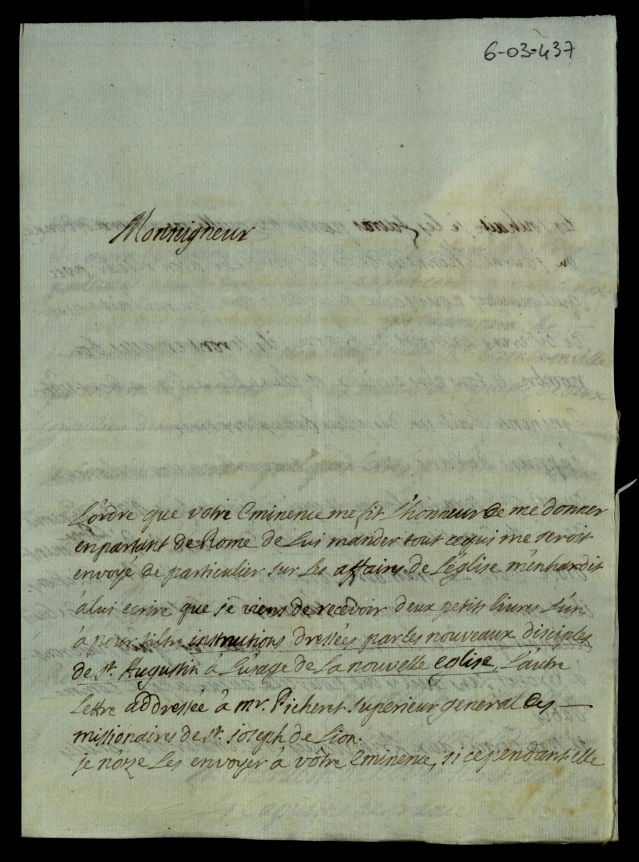 6-03-437
Monseigneur
L'ordre que votre Eminence me fit l'honneur de me donner
en partant de Rome de Lui mander tout ce qui me seroit
envoyé de particulier sur les affaires de L'eglise m'enhardit
à lui ecrire que je viens de recevoir deux petits livres L'un
a pour titre instructions dressées par les nouveaux disciples
de st. Augustin a L'usage de La nouvelle eglise, L'autre
Lettre addressée à mr. Picheret superieur general des
missionaires de st. joseph de Lion.
je n'oze Les envoyer à vôtre Eminence, si cependant elle